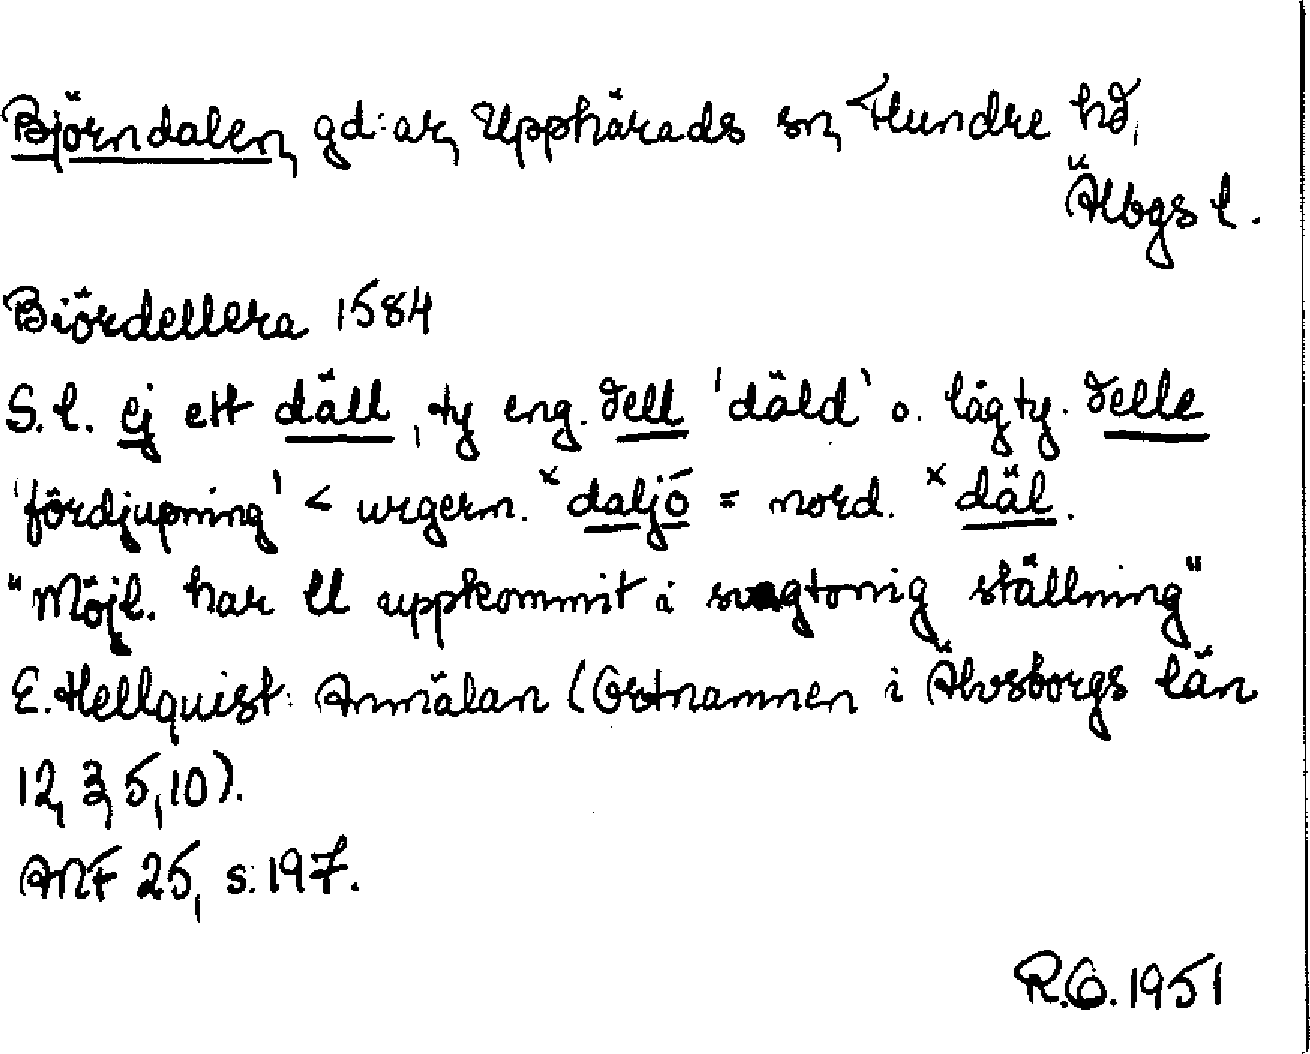 Björndalen, gd:ar, Upphärads sn, Flundre hd,
Älbgs l.
Biördellera 1584
S.l. ej ett däll, ty eng. dell 'däld' o. lågty. delle
'fördjupning' < urgerm. *daljó = nord. *däl.
"Möjl. har ll uppkommit i svagtonig ställning"
E. Hellquist: Anmälan (Ortnamnen i Älvsborgs län
12, 3, 5, 10).
ANF 25, s. 197.
R.O. 1951